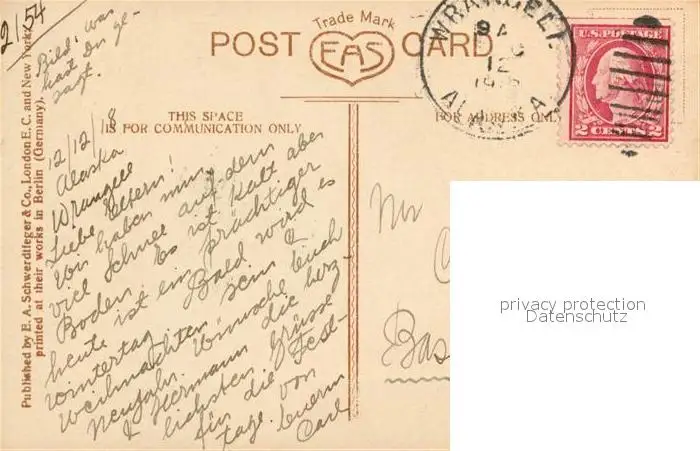 2154
Bild: was
hast Du ge-
sagt.
Trade Mark
POST EAS CARD
WRANGELL
12
ALASKA
U.S.POSTAGE
2 CENTS 2
Published by E. A. Schwerdtfeger & Co., London E. C. and New York,
printed at their works in Berlin (Germany).
THIS SPACE
IS FOR COMMUNICATION ONLY
FOR ADDRESS ONLY
12/12/18
Alaska
Wrangell
Liebe Eltern!
Wir haben nun
viel Schnee auf dem
Boden. Es ist kalt aber
heute ist ein prächtiger
Wintertag. Bald wird es
Weihnachten sein &
Neujahr. Wünsche Euch
& Hermann die herz-
lichsten Grüsse
für die Fest-
tage. von
Euerm
Carl
Mr
Bas
privacy protection
Datenschutz